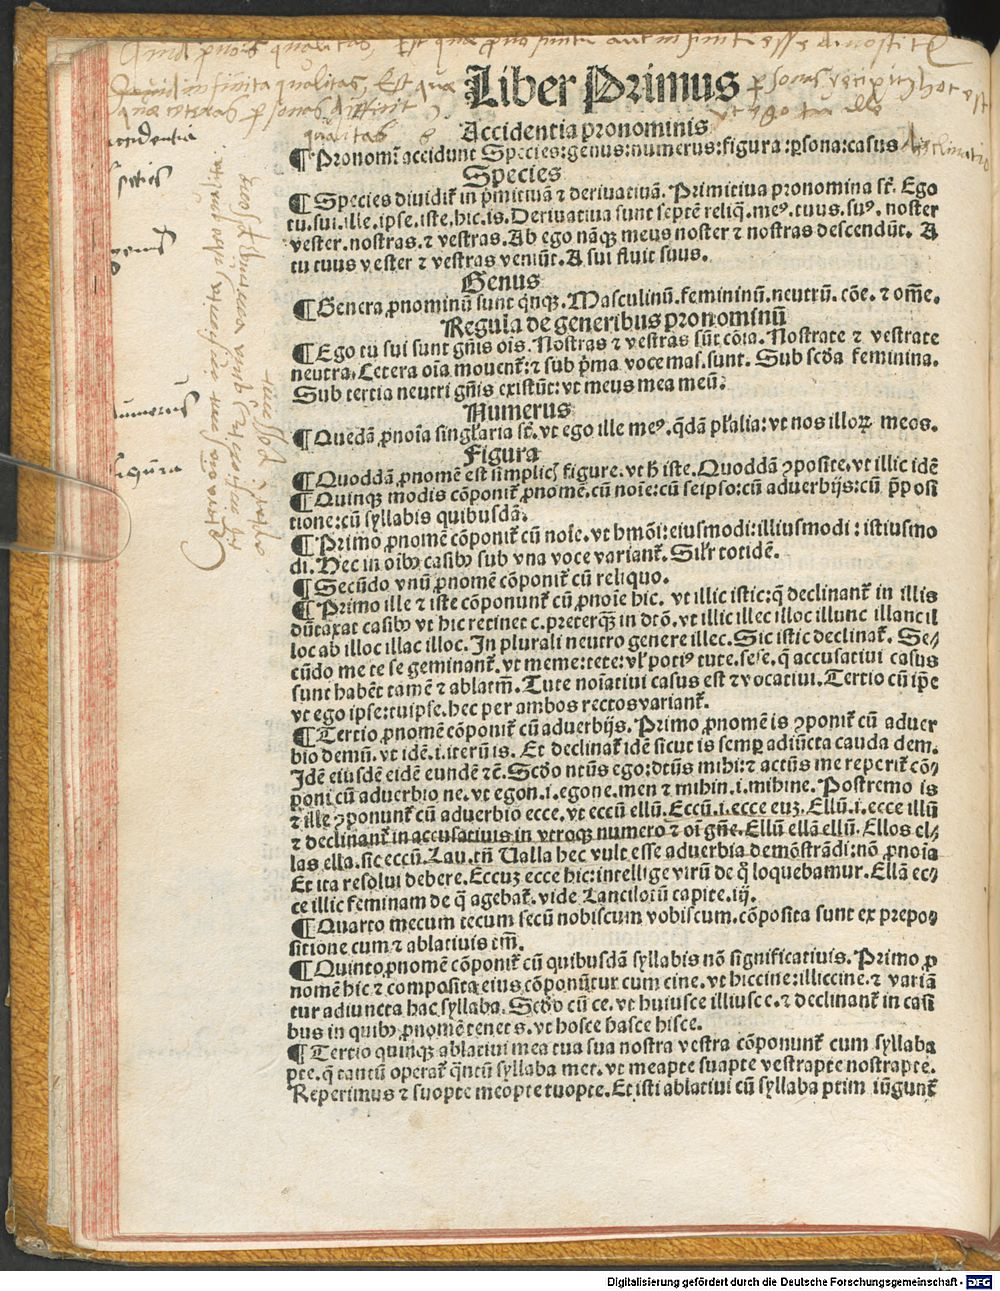 Liber Primus
Accidentia pronominis
¶ Pronomī accidunt Species:genus:numerus:figura:ꝑsona:casus
Species
¶ Species diuidiť in p̄mitiuā ⁊ deriuatiuā. Primitiua pronomina sť. Ego
tu.sui.ille.ipse.iste.hic.is. Deriuatiua sunt septē reliq̄.meꝰ.tuus.suꝰ.noster
vester.nostras.⁊ vestras. Ab ego nāqꝫ meus noster ⁊ nostras descendūt. A
tu tuus vester ⁊ vestras veniūt. A sui fluit suus.
Genus
¶ Genera ꝓnominū sunt qnqꝫ. Masculinū.femininū.neutrū.cōe.⁊ om̄e.
Regula de generibus pronominū
¶ Ego tu sui sunt gn̄is ois. Nostras ⁊ vestras sūt cōia. Nostrate ⁊ vestrate
neutra. Cetera oīa mouenť: ⁊ sub p̄ma voce mas.sunt. Sub scd̄a feminina.
Sub tertia neutri gn̄is existūt: vt meus mea meū.
Numerus
¶ Quedā ꝓnoīa singl̄aria sť. vt ego ille meꝰ.qdā pl̄alia: vt nos illoꝝ meos.
Figura
¶ Quoddā ꝓnomē est simplicꝭ figure.vt h̄ iste. Quoddā ꝯposite.vt illic idē
¶ Quinqꝫ modis cōponiť ꝓnomē.cū noīe:cū seipso:cū aduerbijs:cū p̄posi
tione:cū syllabis quibusdā.
¶ Primo ꝓnomē cōponiť cū noīe. vt hmōi: eiusmodi: illiusmodi: istiusmo
di. Hec in oībꝫ casibꝫ sub vna voce varianť. Sil̄r totidē.
¶ Secūdo vnū ꝓnomē cōponiť cū reliquo.
¶ Primo ille ⁊ iste cōponunť cū ꝓnoīe hic. vt illic istic: q̄ declinanť in illis
dūtaxat casibꝫ vt hic retinet c. preterqꝫ in dtō. vt illic illec illoc illunc illanc il
loc ab illoc illac illoc. In plurali neutro genere illec. Sic istic declinať. Se⸗
cūdo me te se geminanť. vt meme: tete: vl̄ potiꝰ tute.sese. q̄ accusatiui casus
sunt habēt tamē ⁊ ablatm̄. Tute noīatiui casus est ⁊ vocatiui. Tertio cū ip̄e
vt ego ipse: tuipse. hec per ambos rectos varianť.
¶ Tertio ꝓnomē cōponiť cū aduerbijs. Primo ꝓnomē is ꝯponiť cū aduer
bio demū. vt idē.i.iterū is. Et declinať idē sicut is semꝑ adiūcta cauda dem.
Idē eiusdē eidē eundē ⁊c̄. Scd̄o ntūs ego: dtūs mihi: ⁊ actūs me reperiť cō⸗
poni cū aduerbio ne. vt egon.i.egone.men ⁊ mihin.i.mihine. Postremo is
⁊ ille ꝯponunť cū aduerbio ecce. vt eccū ellū. Eccū.i.ecce euꝫ. Ellū.i.ecce illū
⁊ declinanť in accusatiuis in vtroqꝫ numero ⁊ oī gn̄e. Ellū ellā ellū. Ellos el⸗
las ella. sic eccū. Lau. tn̄ Ualla hec vult esse aduerbia demōstrādi: nō ꝓnoīa
Et ita resolui debere. Eccuꝫ ecce hic: intellige virū de q̄ loquebamur. Ellā ec⸗
ce illic feminam de q̄ agebať. vide Lancilotū capite.iij.
¶ Quarto mecum tecum secū nobiscum vobiscum. cōposita sunt ex prepo⸗
sitione cum ⁊ ablatiuis tm̄.
¶ Quinto ꝓnomē cōponiť cū quibusdā syllabis nō significatiuis. Primo ꝓ
nomē hic ⁊ composita eius cōponūtur cum cine. vt hiccine: illiccine. ⁊ variā
tur adiuncta hac syllaba. Scd̄o cū ce. vt huiusce illiusce c. ⁊ declinanť in casi
bus in quibꝫ ꝓnomē tenet s. vt hosce hasce hisce.
¶ Tertio quinqꝫ ablatiui mea tua sua nostra vestra cōponunť cum syllaba
pte. q̄ tantū operať q̄ntū syllaba met. vt meapte suapte vestrapte nostrapte.
Reperimus ⁊ suopte meopte tuopte. Et isti ablatiui cū syllaba ptim iūgunť
accidentia
species
genus
numerus
figura
qualitas
Digitalisierung gefördert durch die Deutsche Forschungsgemeinschaft - DFG